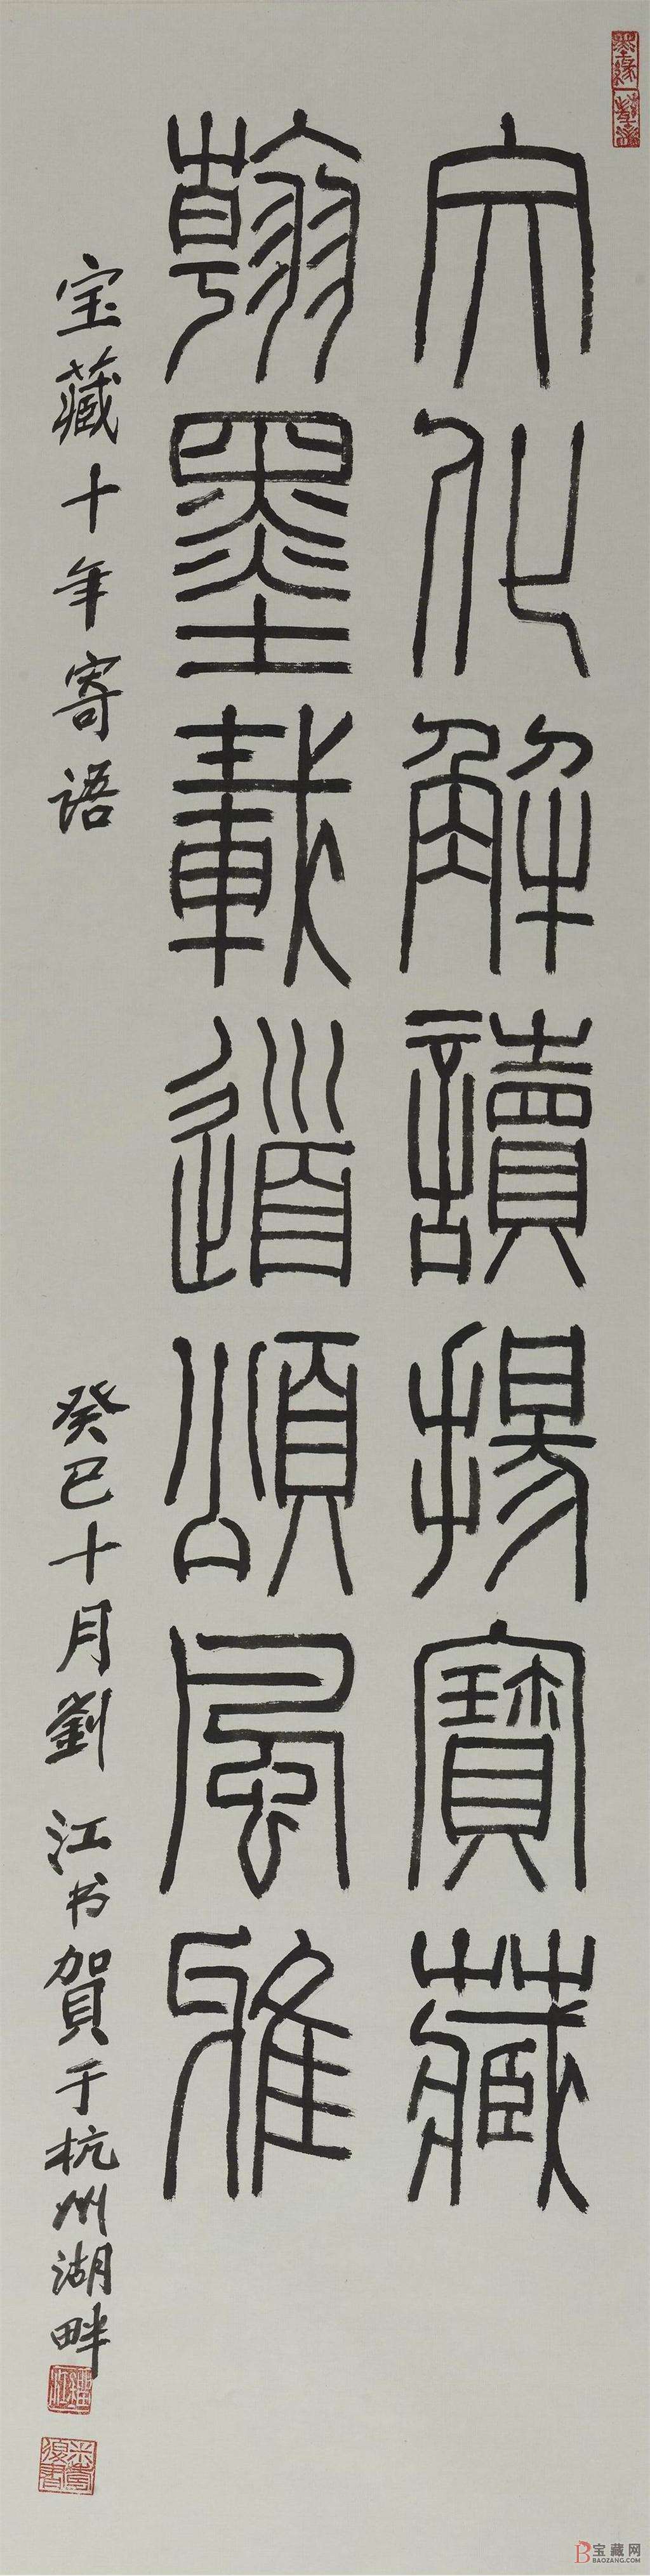 文化解讀揚寶藏
翰墨載道頌風雅
宝藏十年寄语
癸巳十月劉江书賀于杭州湖畔
宝藏网
BAOZANG.COM